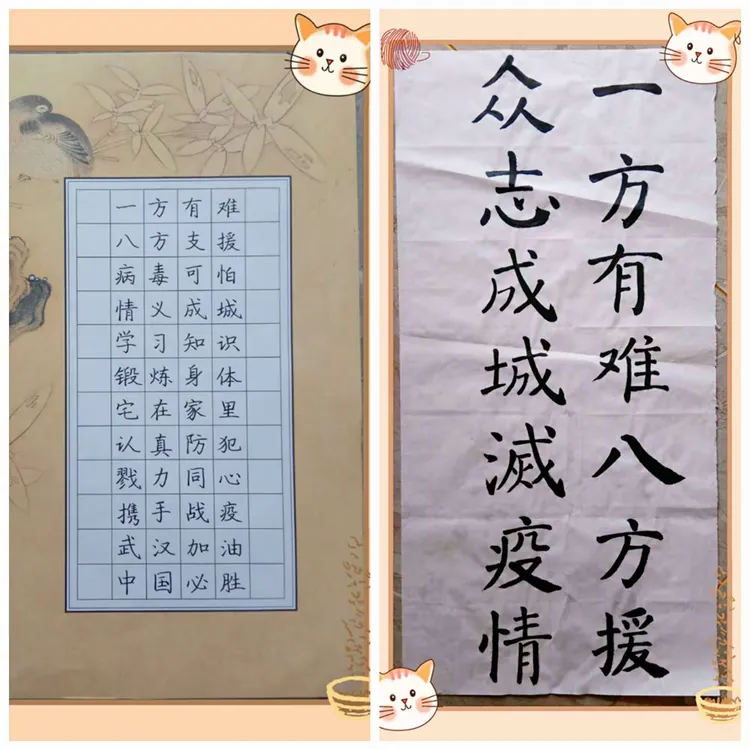 一方有难
八方支援
病毒可怕
情义成城
学习知识
锻炼身体
宅在家里
认真防犯
戮力同心
携手战疫
武汉加油
中国必胜
一方有难八方援
众志成城滅疫情